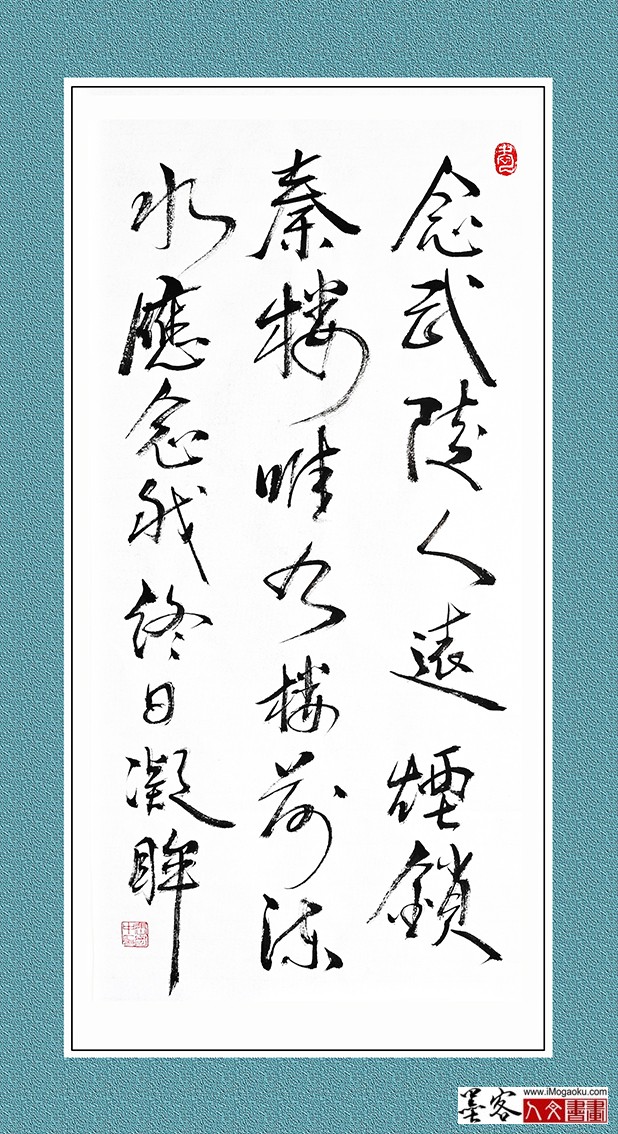 念武陵人遠煙鎖
秦楼唯有楼前流
水應念我終日凝眸
墨客
www.iMogaoku.com
人文書畫